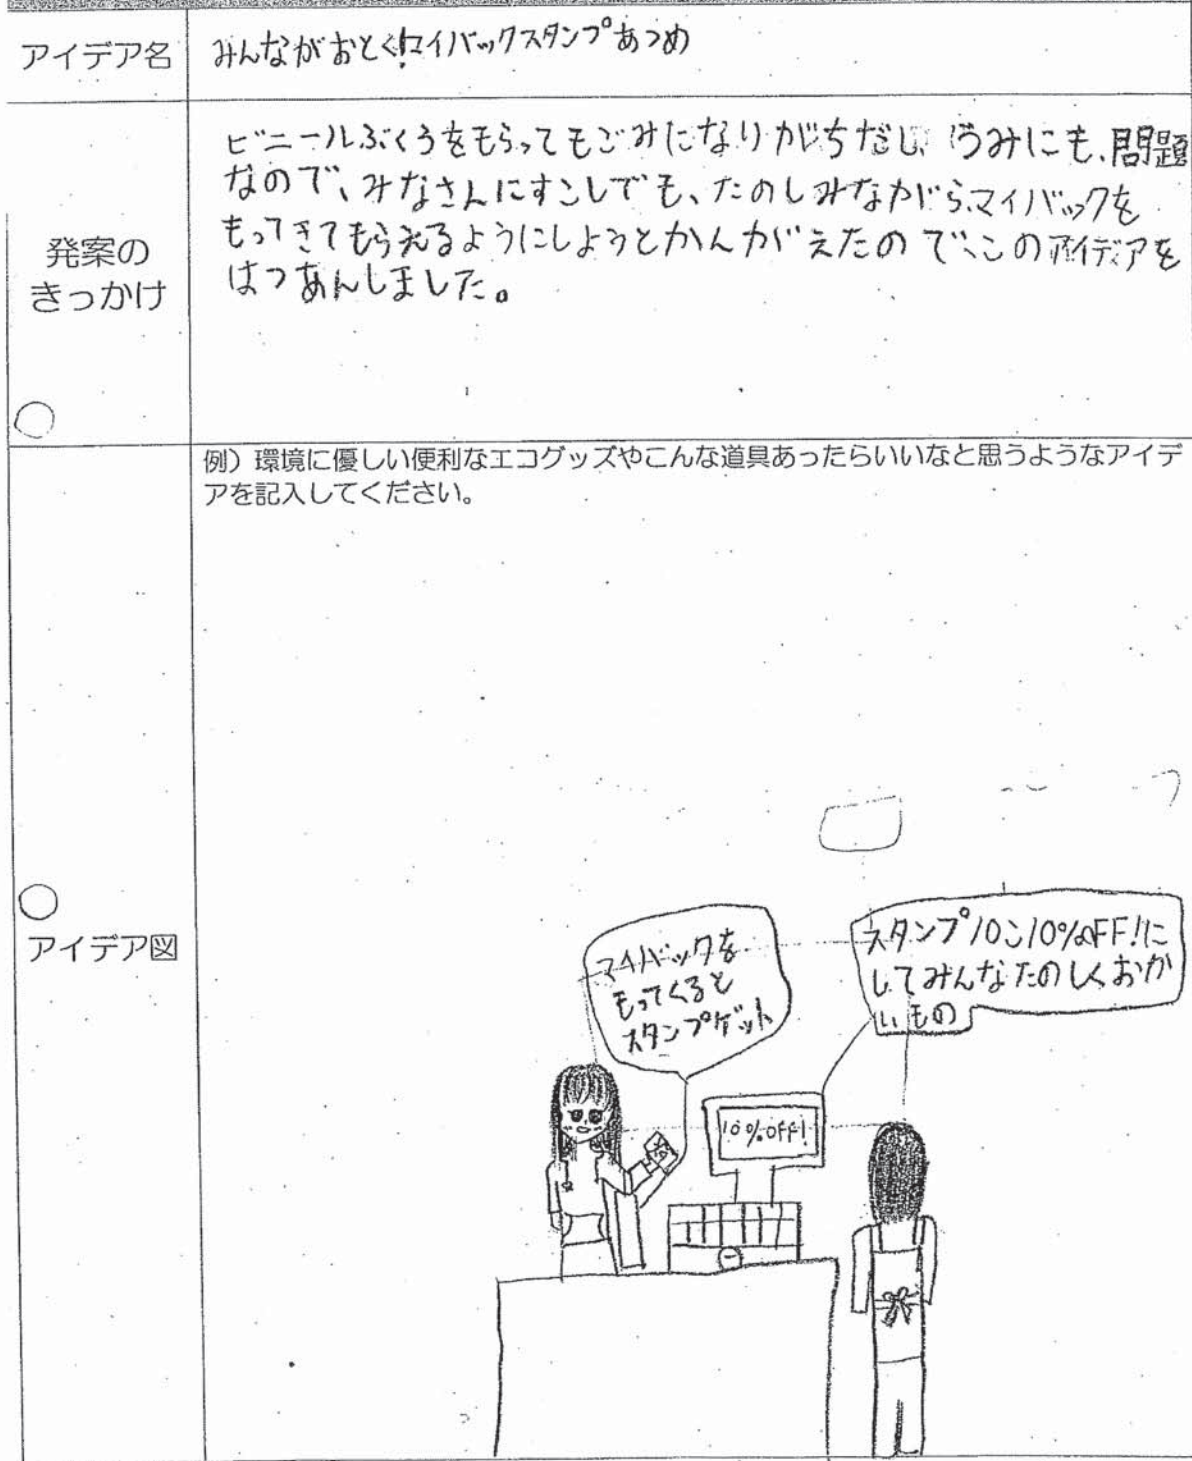 アイデア名
みんながおとく!マイバックスタンプあつめ
発案の
きっかけ
ビニールぶくろをもらってもごみになりがちだし、うみにも、問題
なので、みなさんにすこしでも、たのしみながら、マイバックを
もってきてもらえるようにしようとかんがえたので、このアイデアを
はつあんしました。
例）環境に優しい便利なエコグッズやこんな道具あったらいいなと思うようなアイデ
アを記入してください。
アイデア図
マイバックを
もってくると
スタンプゲット
スタンプ10こ10%OFF!に
してみんなたのしくおか
いもの
10%OFF!